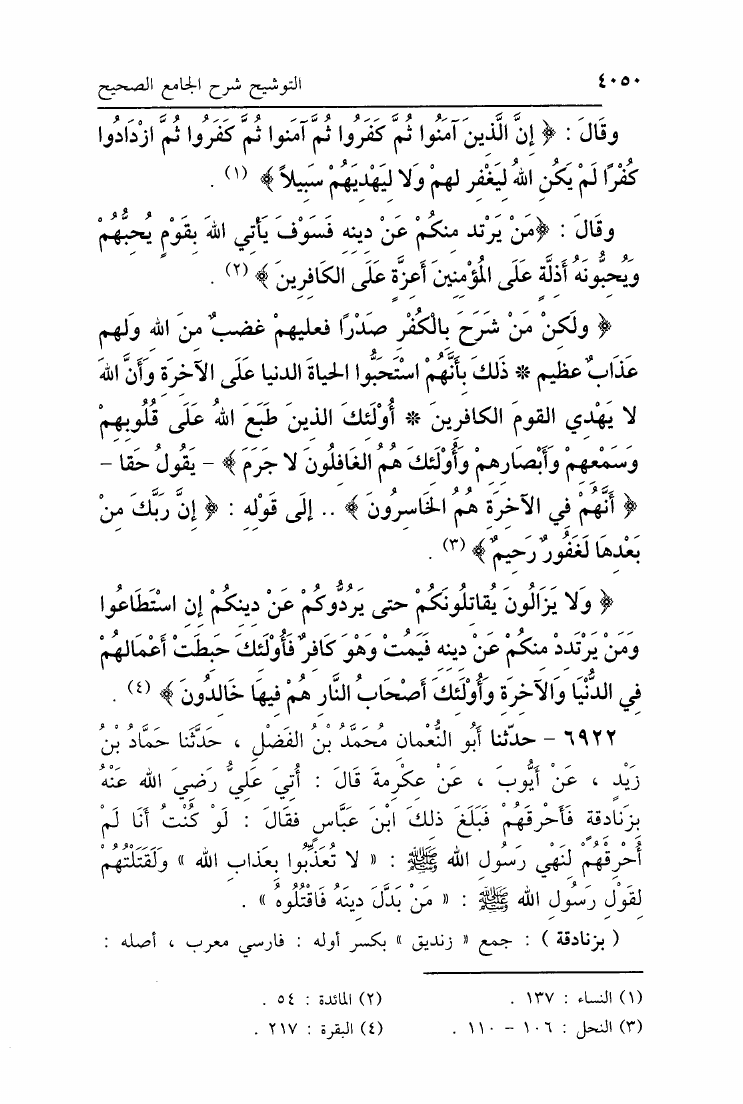 ٤٠٥٠ التوشيح شرح الجامع الصحيح
وقَالَ : ﴿ إنَّ الَّذينَ آمَنُوا ثُمَّ كَفَرُوا ثُمَّ آمَنوا ثُمَّ كَفَرُوا ثُمَّ ازْدَادُوا
كُفْرًا لَمْ يَكُنِ اللهُ ليَغْفِر لهمْ وَلا ليَهْديَهُمْ سَبيلاً ﴾ (١) .
وقَالَ : ﴿مَنْ يَرْتد منكُمْ عَنْ دينِهِ فَسَوْفَ يَأتي اللهَ بقَوْمٍ يُحبُّهُمْ
وَيُحبُّونَهُ أذلَّةٍ عَلَى المُؤْمِنينَ أعزَّةٍ عَلَى الكَافِرينَ ﴾ (٢) .
﴿ ولَكنْ مَنْ شَرَحَ بالْكُفْرِ صَدْرًا فعليهمْ غضبٌ منَ الله ولهم
عَذَابٌ عظيم * ذَلكَ بأَنَّهُمْ اسْتَحَبُّوا الحياةَ الدنيا عَلَى الآخرَةِ وَأَنَّ اللهَ
لا يَهْدي القومَ الكافرينَ * أُوْلَئكَ الذينَ طَبَعَ اللهُ عَلَى قُلُوبِهِمْ
وَسَمْعِهمْ وَأَبْصَارِهِمْ وَأُوْلَئكَ هُمُ الغَافِلُونَ لا جَرَمَ ﴾ – يَقُولُ حَقا –
﴿ أَنَّهُمْ فِي الآخرَةِ هُمُ الخَاسِرُونَ ﴾ .. إلَى قَوْلهِ : ﴿ إنَّ رَبَّكَ مِنْ
بَعْدِهَا لَغَفُورٌ رَحِيمٌ ﴾ (٣) .
﴿ وَلا يَزَالُونَ يُقَاتلُونَكُمْ حتى يَرُدُّوكُمْ عَنْ دينكُمْ إن اسْتَطَاعُوا
وَمَنْ يَرْتَددْ منكُمْ عَنْ دينه فَيَمُتْ وَهُوَ كَافرٌ فَأُوْلَئكَ حَبطَتْ أعْمَالهُمْ
في الدُّنْيَا وَالآخرَةِ وَأُوْلَئكَ أصْحَابُ النَّارِ هُمْ فيهَا خَالدُونَ ﴾ (٤) .
٦٩٢٢ – حدّثنا أَبُو النُّعْمانِ مُحَمَّدُ بْنُ الفَضْلِ ، حَدَّثنا حَمَّادُ بْنُ
زَيْدٍ ، عَنْ أيُّوبَ ، عَنْ عكْرمةَ قَالَ : أُتيَ عَليٌّ رَضيَ الله عَنْهُ
بزَنَادقةٍ فَأحْرقَهُمْ فَبَلَغَ ذلكَ ابْنَ عبَّاسٍ فقَالَ : لَوْ كُنْتُ أنَا لَمْ
أُحرِقْهُمْ لنَهْي رَسُولِ الله ﷺ : « لا تُعَذّبُوا بعَذابِ الله » ولَقَتَلْتُهُمْ
لقَوْلِ رَسُولِ الله ﷺ : « مَنْ بَدَّلَ دينَهُ فَاقْتُلُوهُ » .
( بزنادقة ) : جمع « زنديق » بكسر أوله : فارسي معرب ، أصله :
(١) النساء : ١٣٧ . (٢) المائدة : ٥٤ .
(٣) النحل : ١٠٦ – ١١٠ . (٤) البقرة : ٢١٧ .